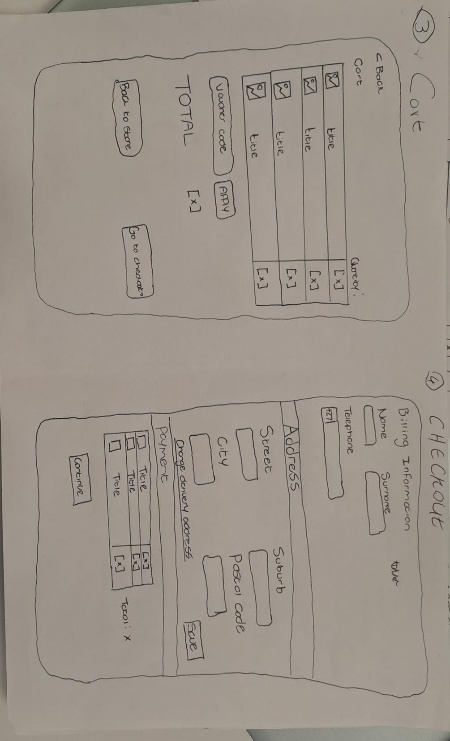 3 Cart
< Back
Cart
Quantity:
title [x]
title [x]
title [x]
title [x]
Voucher code APPLY
TOTAL [x]
Back to Store Go to checkout
4 CHECKOUT
Billing Information
Name Surname
Telephone
+27
Address
Street Suburb
City Postal Code
Change delivery address Save
Payment
Title [x]
Title [x]
Title [x]
Total: x
Continue